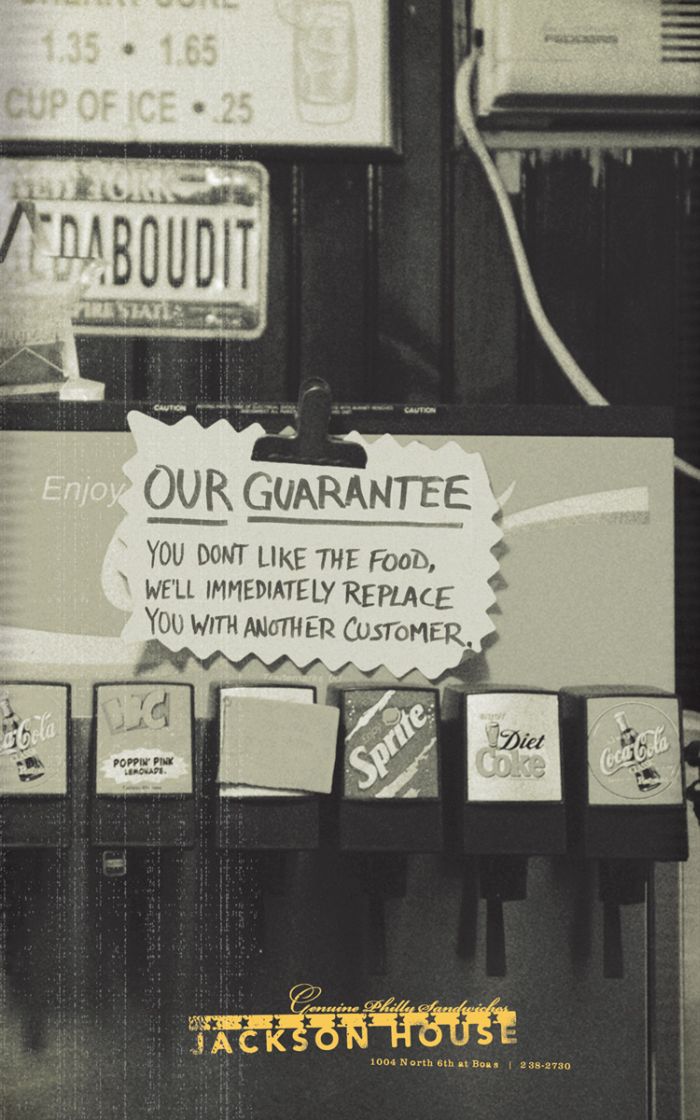 CHERRY COKE
1.35 • 1.65
CUP OF ICE • .25
FEDDERS
NEW YORK
EDABOUDIT
PIRE STATE
CAUTION
CAUTION
Enjoy
OUR GUARANTEE
YOU DONT LIKE THE FOOD,
WE'LL IMMEDIATELY REPLACE
YOU WITH ANOTHER CUSTOMER.
Coca-Cola
HI-C
POPPIN' PINK
LEMONADE.
Sprite
Diet
Coke
Coca-Cola
Genuine Philly Sandwiches
JACKSON HOUSE
1004 North 6th at Boas | 238-2730